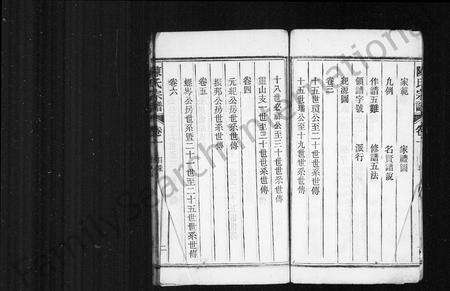 陳氏宗譜 卷一
家範 家禮圖
凡例 名賢譜説
作譜五難 修譜五法
領譜字號 派行
規源圖
卷三
十五世
十五世 公至十九世世系世傳
十八世 公至三十世世系世傳
靈山支二世至二十世世系世傳
卷四
元 公房世系世傳
振邦公房世系世傳
卷五
經 公房世系暨二十一世至二十五世世系世傳
卷六
陳氏宗譜 卷一
FamilySearch International